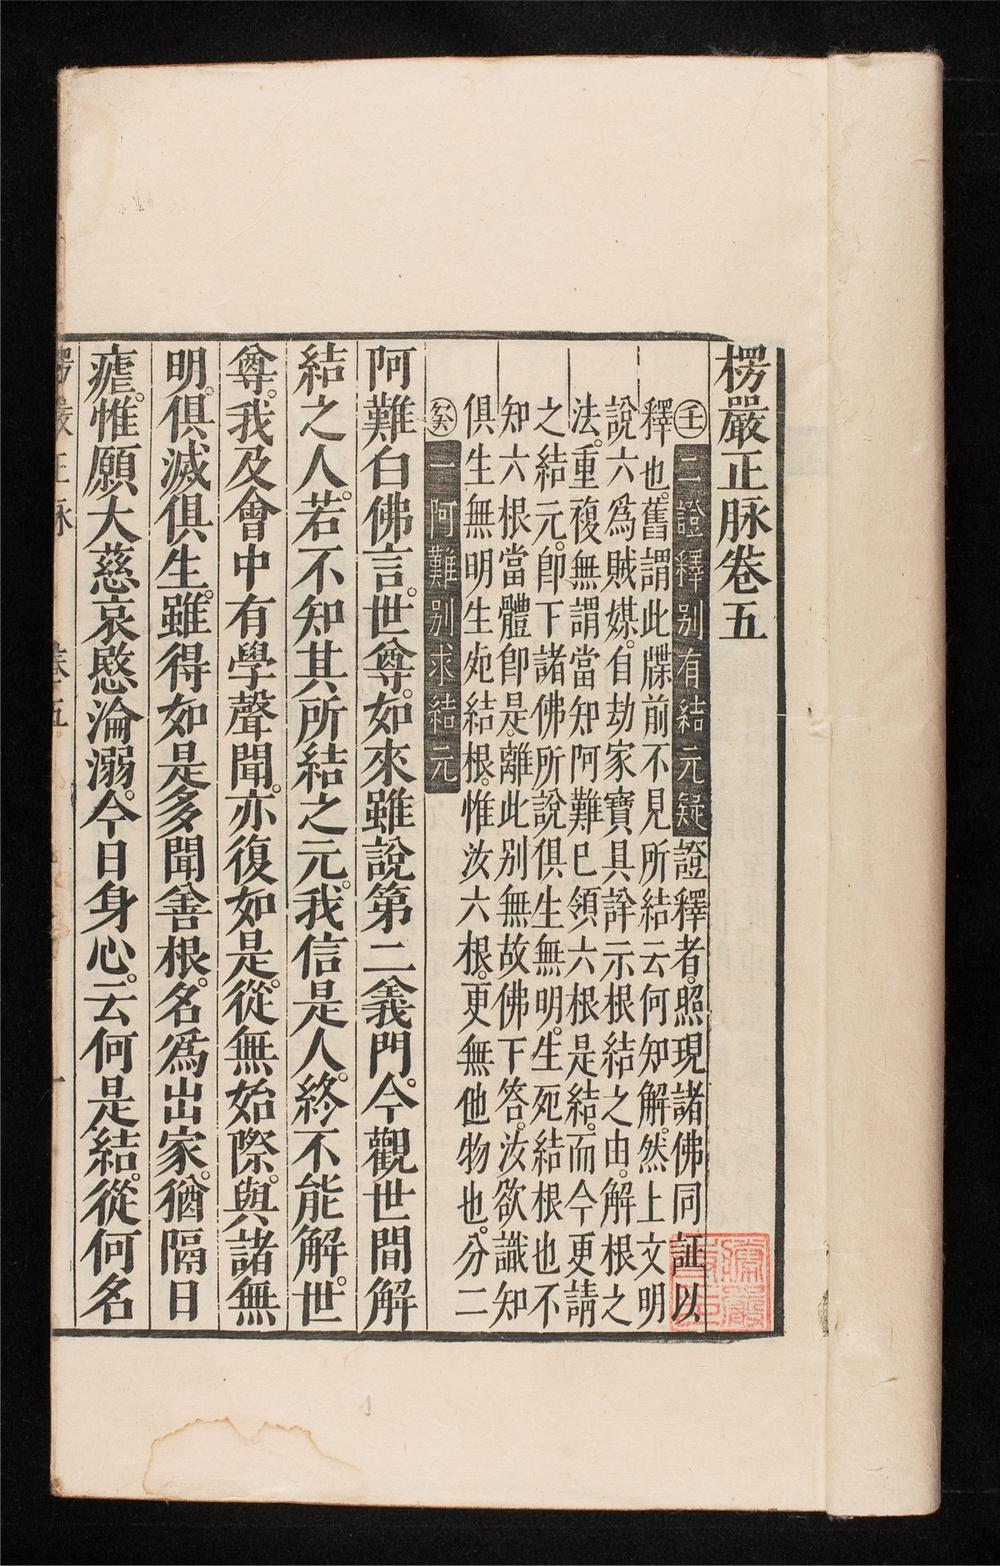 楞嚴正脉卷五
㊂二證釋別有結元疑證釋者。照現諸佛同証以
釋也。舊謂此牒前不見所結云何知解。然上文明
說六爲賊媒。自劫家寶具詳示根結之由。解根之
法。重複無謂當知阿難巳領六根是結。而今更請
之結元。卽下諸佛所說俱生無明。生死結根也不
知六根當體卽是。離此別無故佛下答。汝欲識知
俱生無明生處結根。惟汝六根。更無他物也。分二
㊇一阿難別求結元
阿難白佛言。世尊。如來雖說第二義門。今觀世間解
結之人。若不知其所結之元。我信是人。終不能解。世
尊。我及會中有學聲聞。亦復如是。從無始際。與諸無
明。俱滅俱生。雖得如是多聞善根。名爲出家。猶隔日
瘧。惟願大慈哀愍淪溺。今日身心。云何是結。從何名
楞嚴正脉 卷五 一